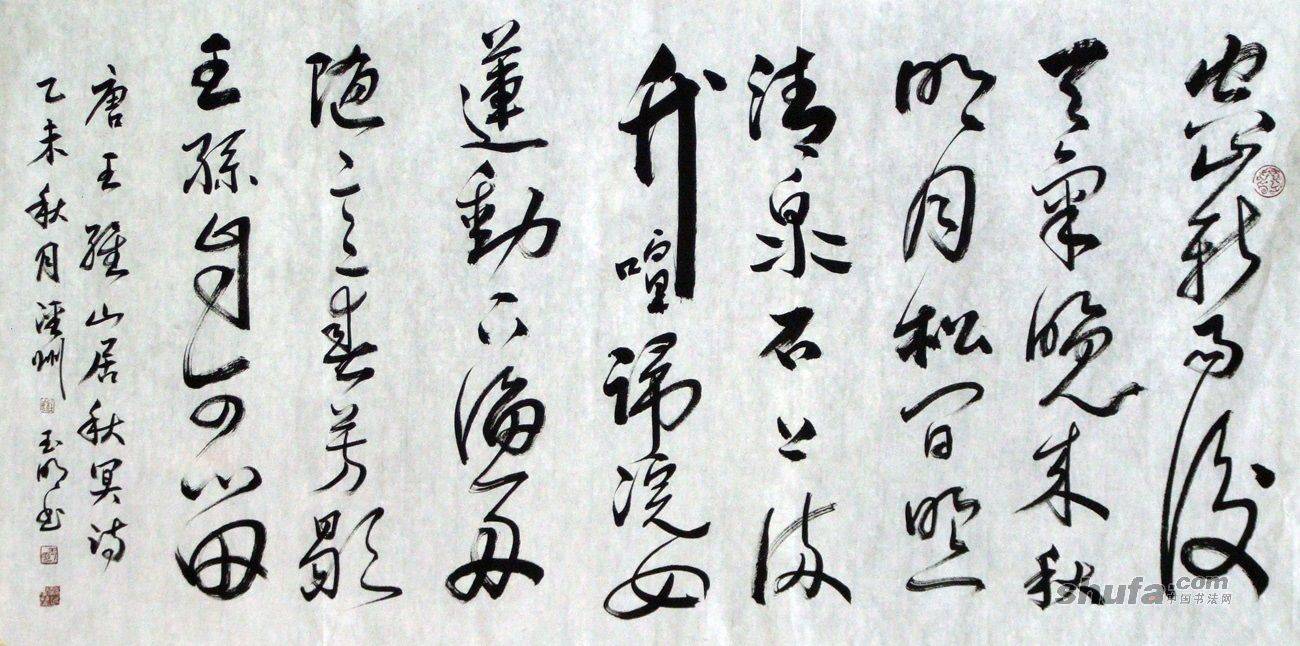 空山新雨後
天氣晚來秋
明月松間照
清泉石上流
竹喧歸浣女
蓮動下漁舟
隨意春芳歇
王孫自可留
唐王維山居秋冥诗
乙未秋月州 玉明书
shufa.com
中国书法网